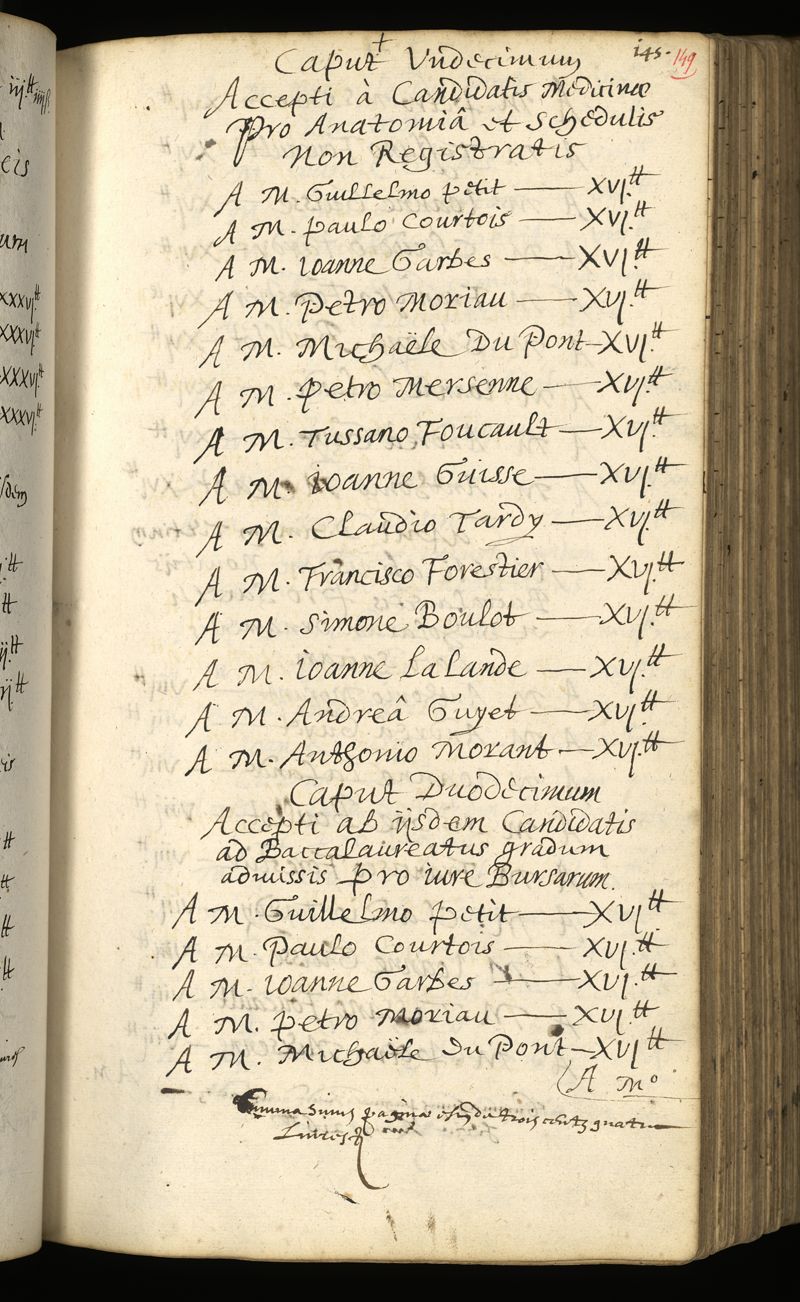 145. 149
Caput Vndecimum
Accepti à Candidatis Medicinæ
Pro Anatomiâ et Schedulis
Non Registratis
A M. Guillelmo Petit — XVI.tt
A M. Paulo Courtois — XVI.tt
A M. Ioanne Garbes — XVI.tt
A M. Petro Moriau — XVI.tt
A M. Michaële Du Pont — XVI.tt
A M. Petro Mersenne — XVI.tt
A M. Tussano Foucault — XVI.tt
A M. Ioanne Guisse — XVI.tt
A M. Claudio Tardy — XVI.tt
A M. Francisco Forestier — XVI.tt
A M. Simone Boulot — XVI.tt
A M. Ioanne La Lande — XVI.tt
A M. Andreâ Guyet — XVI.tt
A M. Anthonio Morant — XVI.tt
Caput Duodecimum
Accepti ab ijsdem Candidatis
ad Baccalaureatus gradum
admissis pro iure Bursarum.
A M. Guillelmo Petit — XVI.tt
A M. Paulo Courtois — XVI.tt
A M. Ioanne Garbes — XVI.tt
A M. Petro Moriau — XVI.tt
A M. Michaële Du Pont — XVI.tt
A Mo
Summa paginæ trois centz quatre
Livres